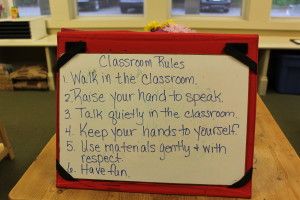 Classroom Rules
1. Walk in the classroom.
2. Raise your hand to speak.
3 Talk quietly in the classroom.
4. Keep your hands to yourself.
5. Use materials gently & with
respect.
6. Have fun.